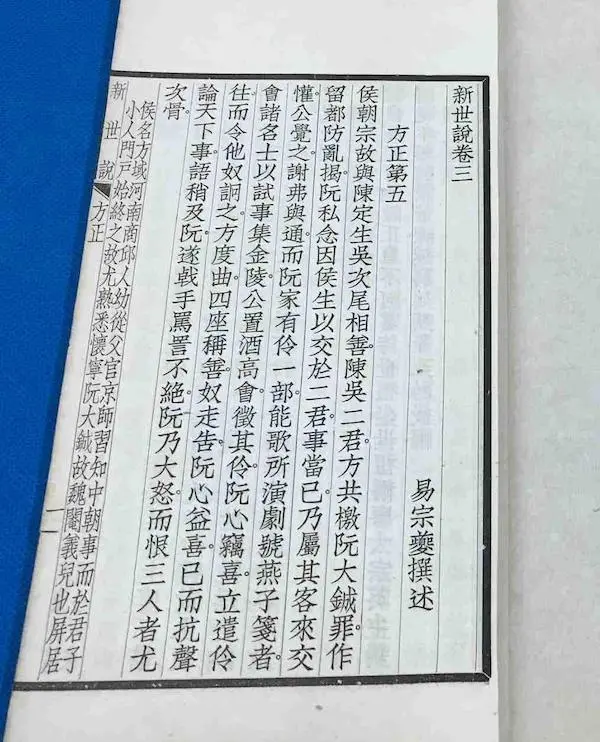 新世說卷三
方正第五
易宗夔撰述
侯朝宗故與陳定生吳次尾相善。陳吳二君方共檄阮大鋮罪作
留都防亂揭。阮私念因侯生以交於二君事當已。乃屬其客來交
懽。公覺之。謝弗與通。而阮家有伶一部。能歌所演劇號燕子箋者。
會諸名士以試事集金陵。公置酒高會。徵其伶。阮心竊喜。立遣伶
往。而令他奴詗之。方度曲。四座稱善。奴走告阮心益喜。已而抗聲
論天下事。語稍及阮。遂戟手罵詈不絕。阮乃大怒。而恨三人者尤
次骨。
侯名方域河南商邱人幼從父官京師習知中朝事而於君子
小人門戶始終之故尤熟悉懷寧阮大鋮故魏閹義兒也屏居
新世說 方正 一